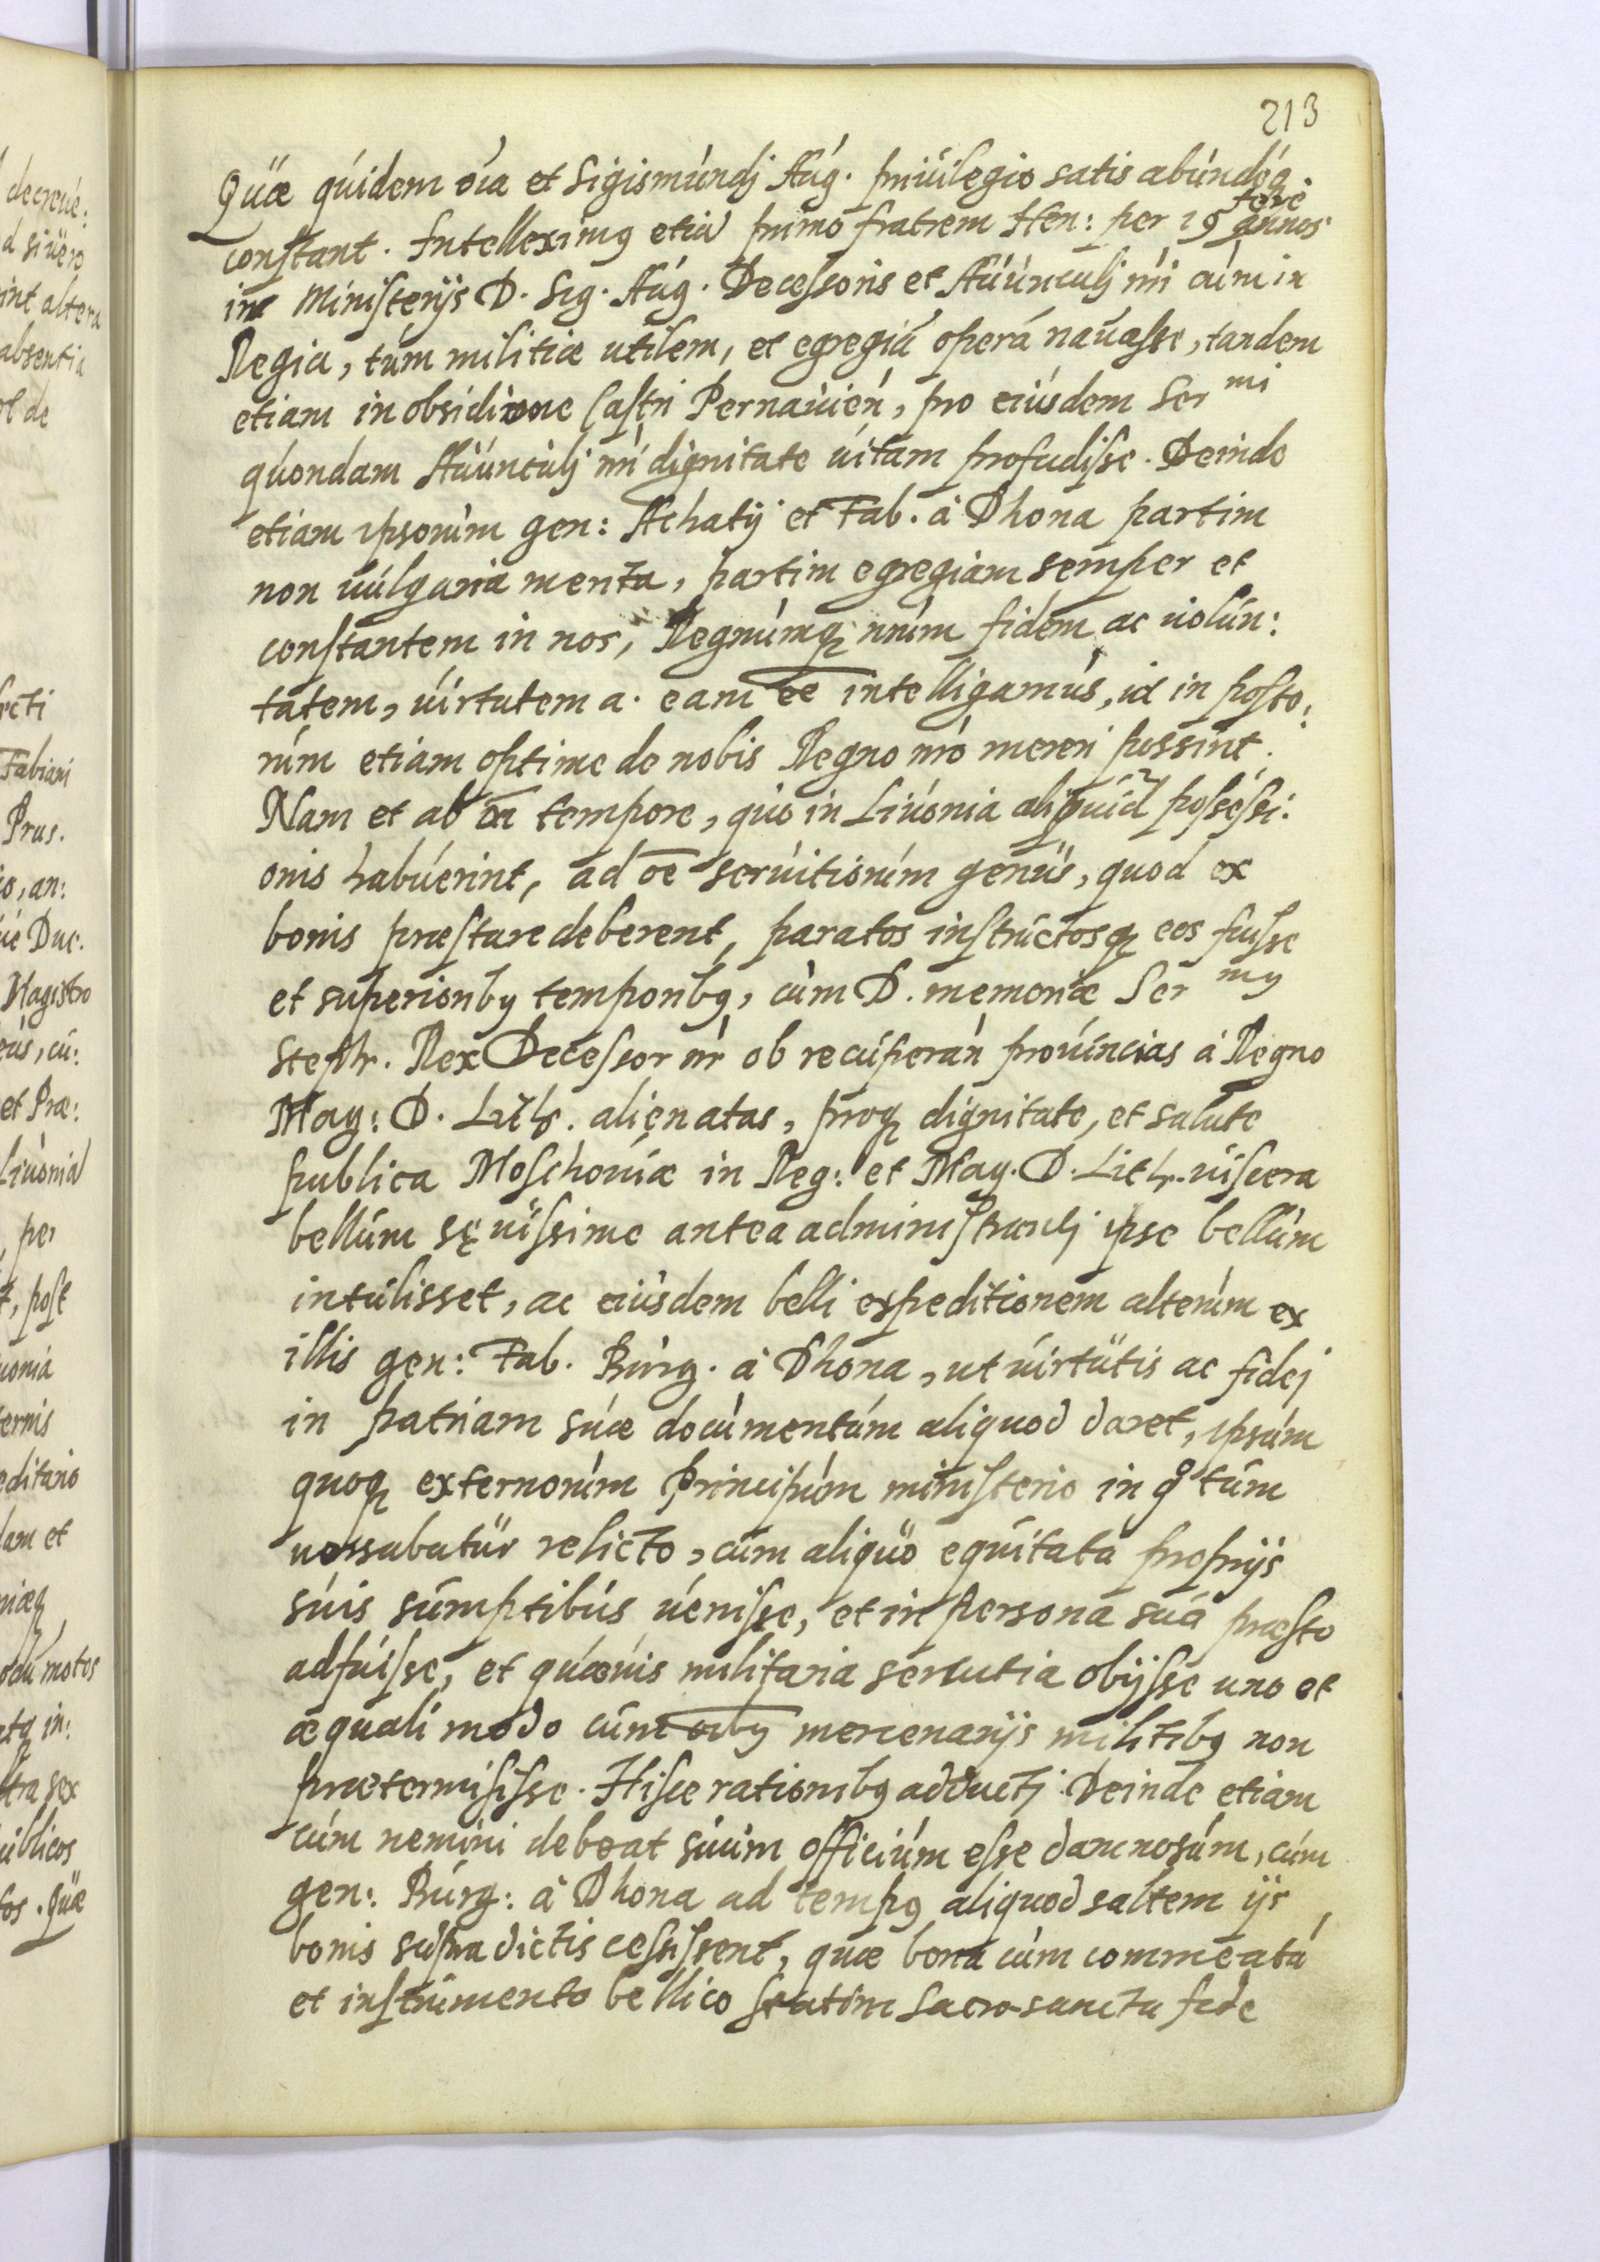 213
Quæ quidem oīa et Sigismundj Aug. priuilegio satis abundeq
constant. Intelleximq etiā primo fratrem Hen: per 19 fere annos
in Ministerijs D. Sig. Aug. Decessoris et Auunculj nri cum in
Regia, tum militiæ utilem, et egregiā operā nauasse, tandem
etiam in obsidione Castri Pernauien, pro eiusdem Ser mi
quondam Auunculj nri dignitate uitam profudisse. Deinde
etiam ipsorum gen: Achatij et Fab. à Dhona partim
non uulgaria merita, partim egregiam semper et
constantem in nos, Regnumq nrum fidem ac uolun:
tatem, uirtutem a. eam ee intelligamus, id in poste:
rum etiam optime de nobis Regno nro mereri possint.
Nam et ab eo tempore, quo in Liuonia aliquid possessi:
onis habuerint, ad oē seruitiorum genus, quod ex
bonis præstare deberent, paratos instructosq eos fuisse
et superioribq temporibq, cum D. memoriæ Ser mq
Steph. Rex Decessor nr ob recuperan prouincias à Regno
Mag: D. Lith. alienatas, proq dignitate, et salute
publica Moschouiæ in Reg: et Mag. D. Lith. uiscera
bellum sęuissime antea administranti ipse bellum
intulisset, ac eiusdem belli expeditionem alterum ex
illis gen: Fab. Burg. à Dhona, ut uirtutis ac fidej
in patriam suæ documentum aliquod daret, ipsum
quoq externorum Principum ministerio in qo tum
uersabatur relicto, cum aliquo equitatu proprijs
suis sumptibus uenisse, et in persona sua præsto
adfuisse, et quæuis militaria seruitia obijsse uno et
æquali modo cum oībq mercenarijs militibq non
prætermisisse. Hisce rationibq adductj Deinde etiam
cum nemini debeat suum officium esse damnosum, cum
gen: Burg: à Dhona ad tempq aliquod saltem ijs
bonis supra dictis cessissent, quæ bona cum commeatu
et instrumento bellico statim sacro-sancta fide